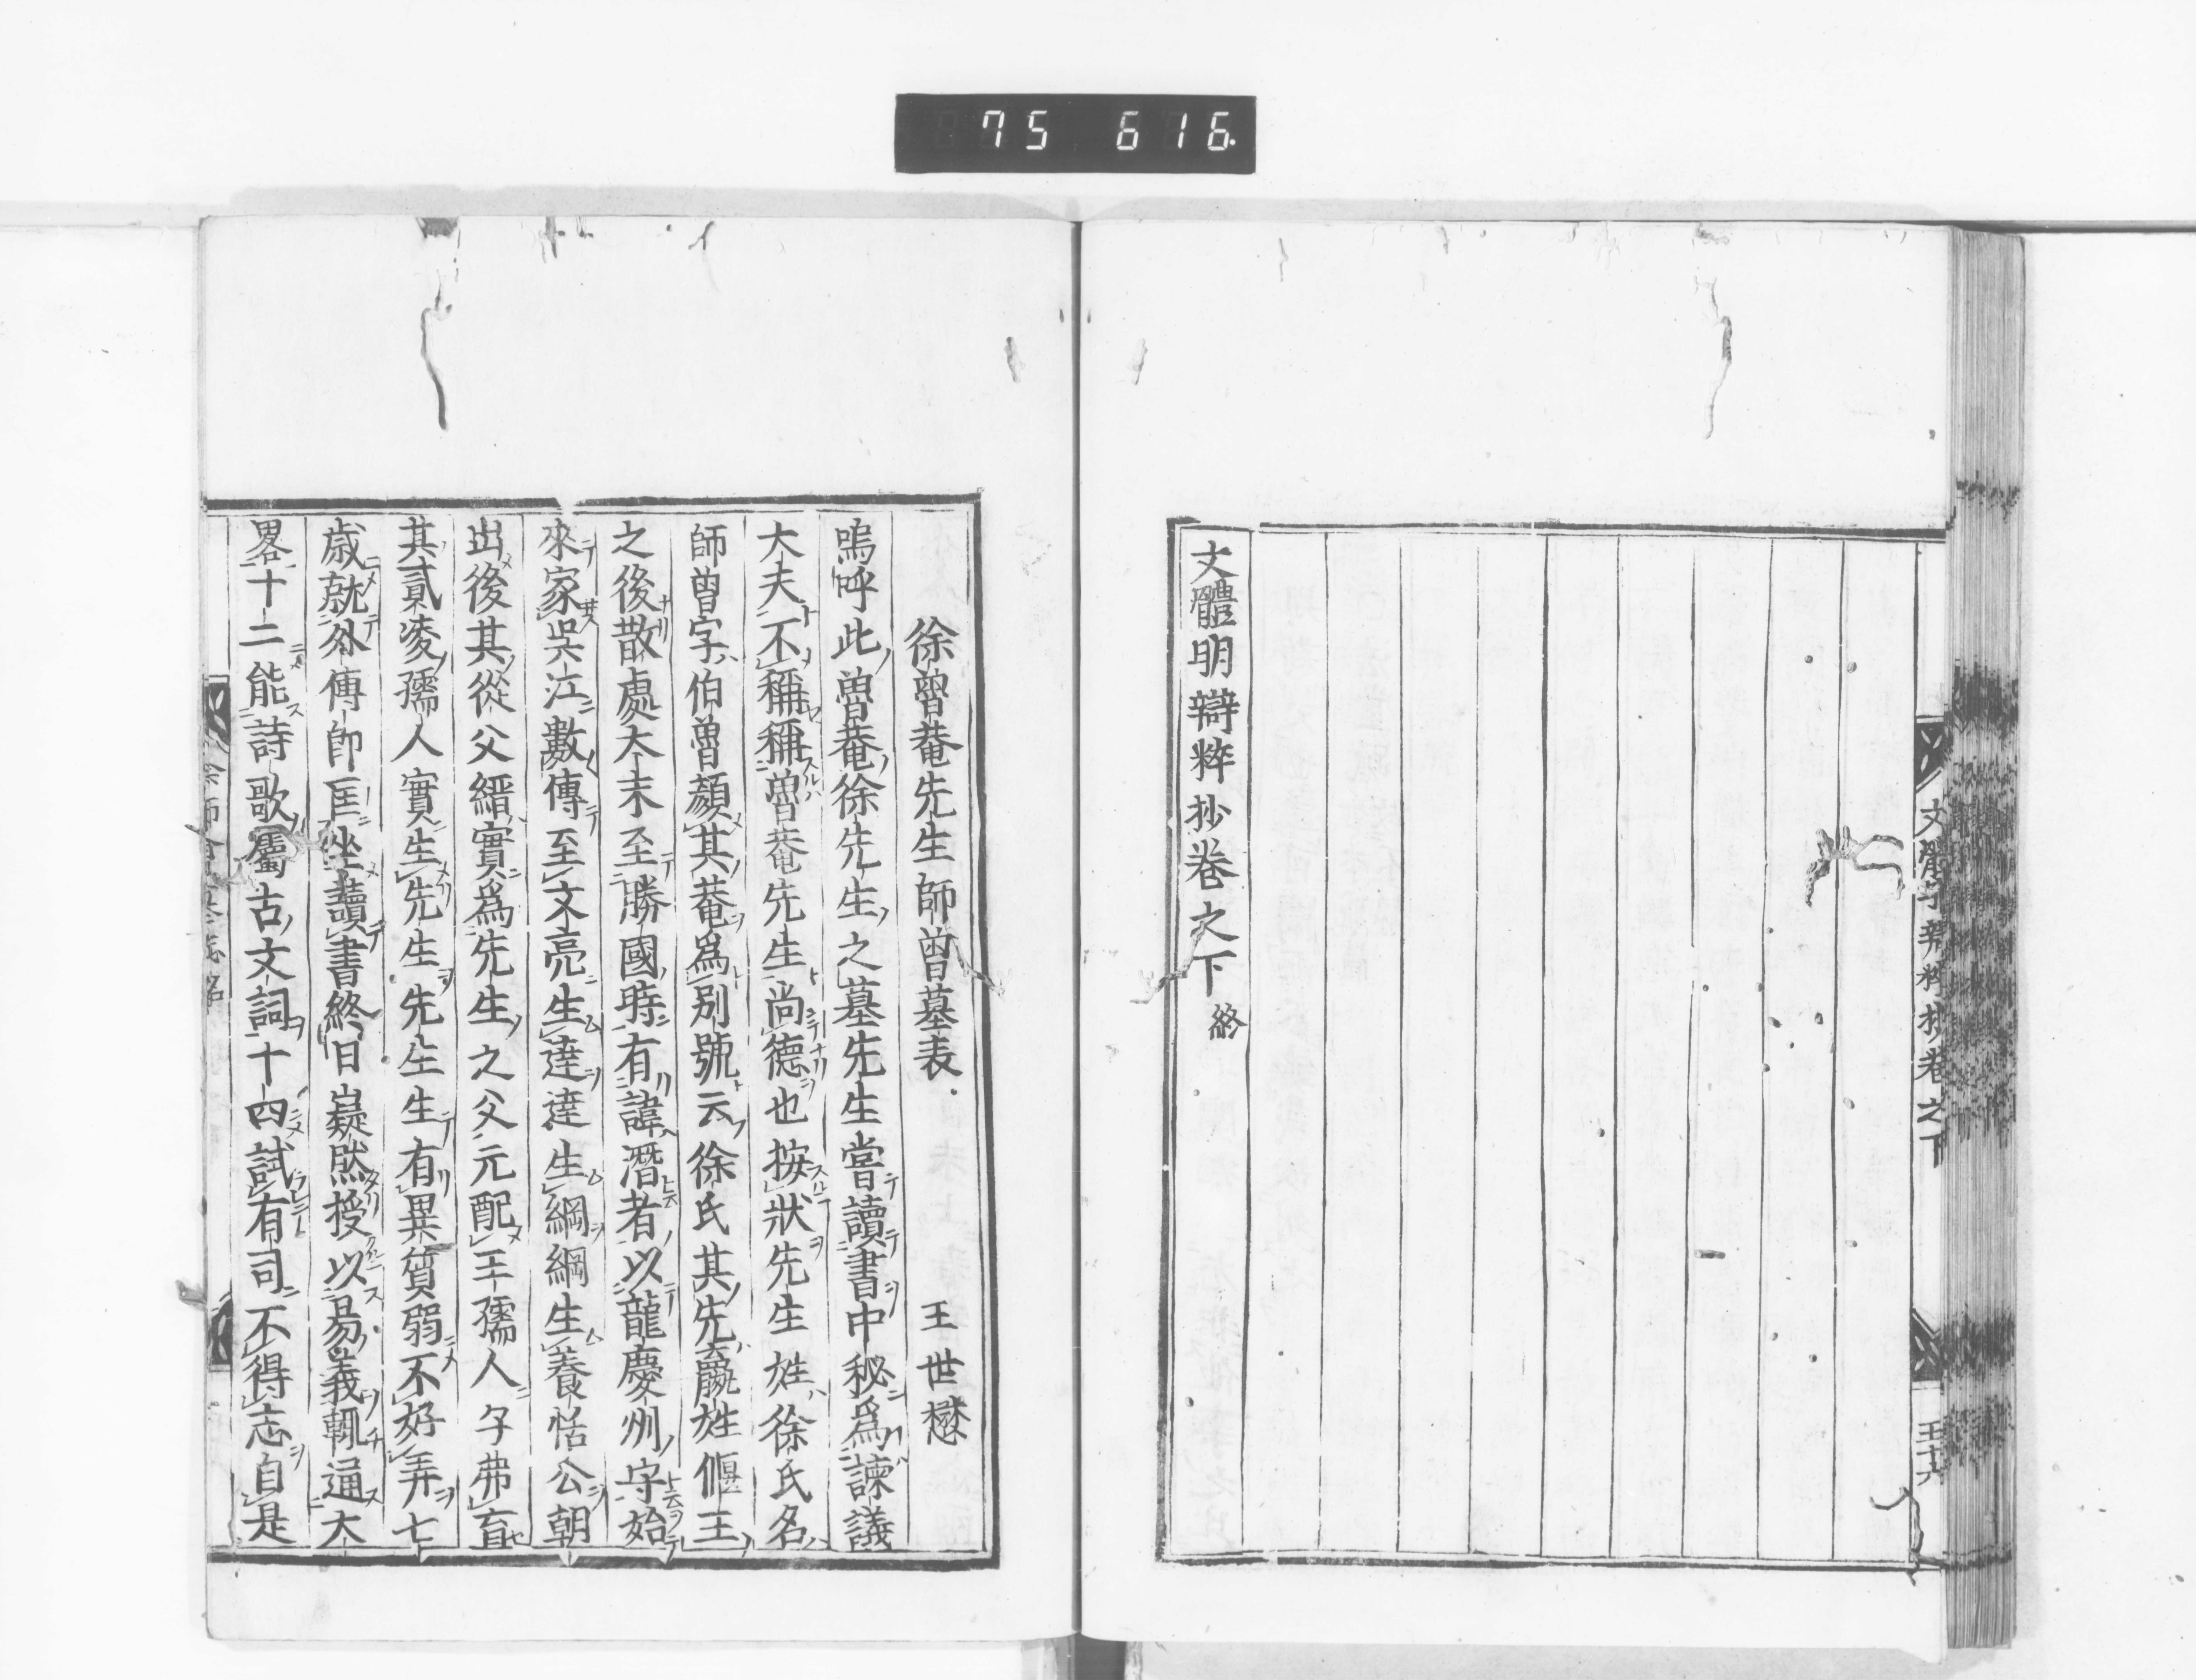 75 616.
文體明辯粹抄卷之下
文體明辯粹抄卷之下終
徐魯菴先生師曾墓表 王世懋
嗚呼此魯菴徐先生之墓先生嘗讀書中秘為諫議
大夫不稱稱魯菴先生尚德也按狀先生姓徐氏名
師曾字伯魯顏其菴為別號云徐氏其先嬴姓偃王
之後散處大末至勝國時有諱潛者以龍慶州守始
來家吳江數傳至文亮生達達生綱綱生養恬公朝
出後其從父縉實為先生之父元配王孺人子弗育
其貳凌孺人實生先生先生生有異質弱不好弄七
歲就外傅師匡坐讀書終日嶷然授以易義輒通大
畧十二能詩歌屬古文詞十四試有司不得志自是